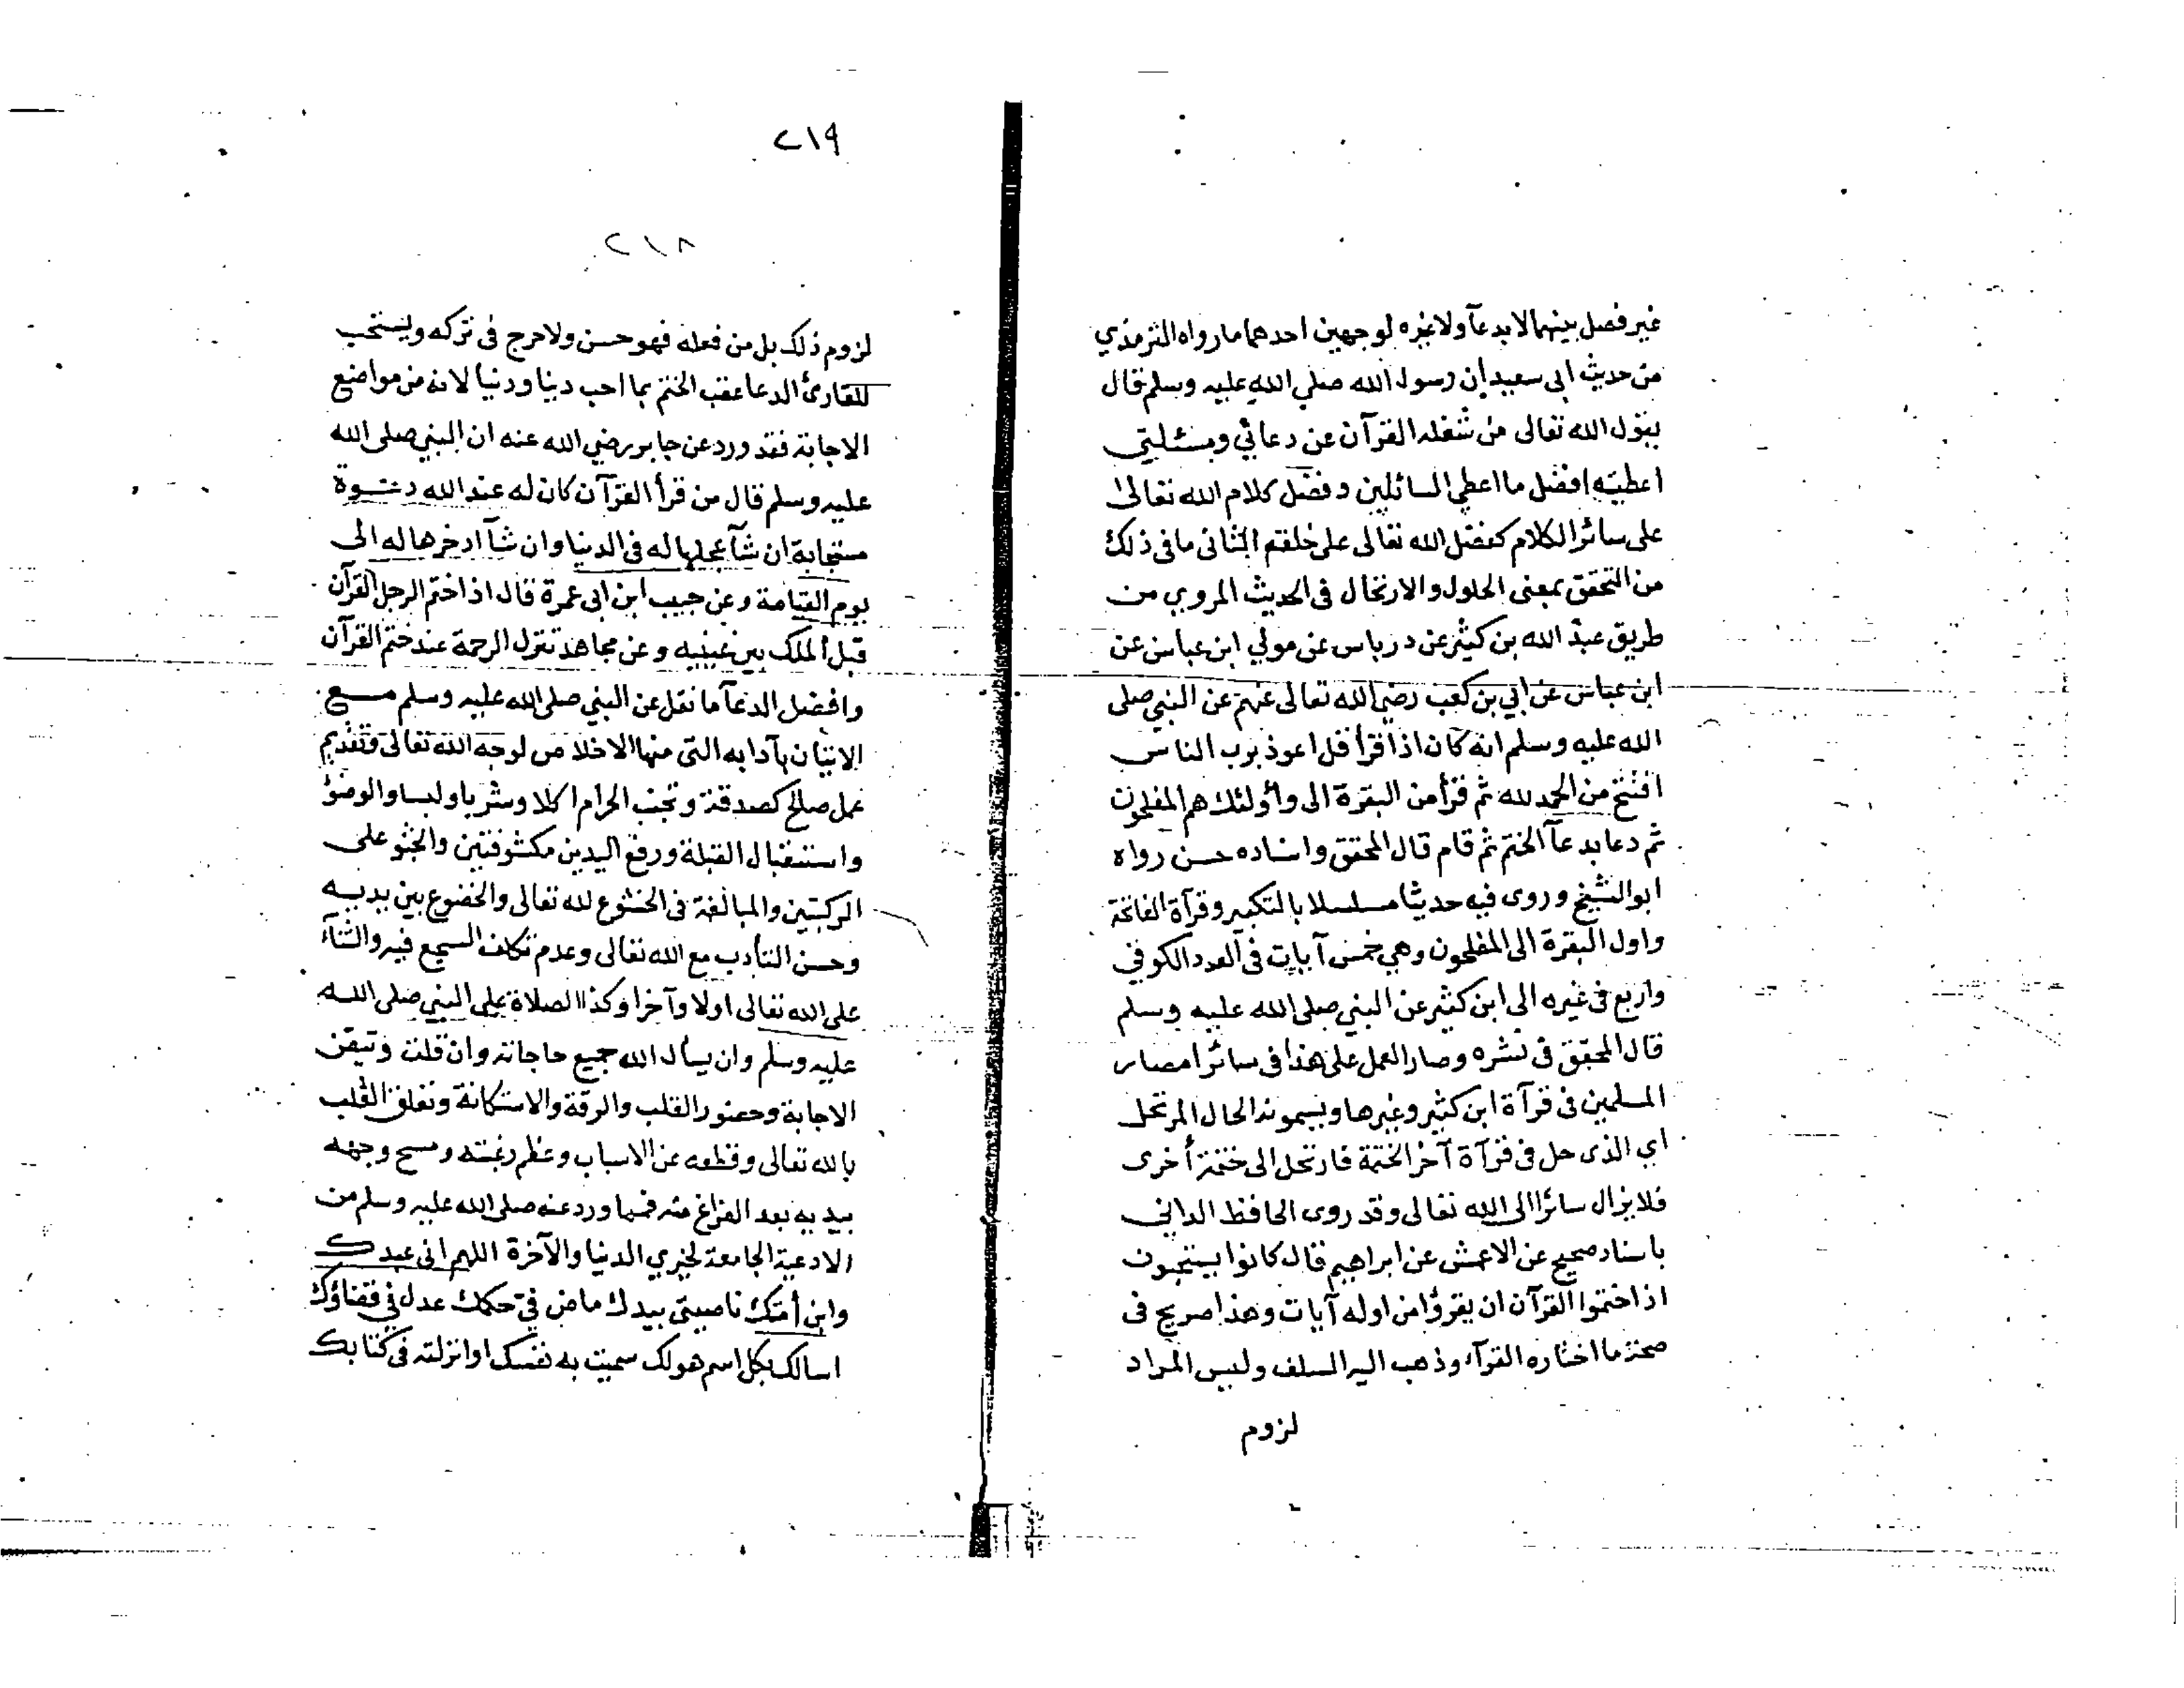 غير فصل بينهما لا بدعآ ولا غيره لوجهين احدهما ما رواه الترمذي
من حديث ابى سعيد ان رسول الله صلي الله عليه وسلم قال
يقول الله تعالى من شغله القرآن عن دعائي ومسئلتي
اعطيته افضل ما اعطي السائلين وفضل كلام الله تعالى
على سائر الكلام كفضل الله تعالى على خلقه الثانى ما فى ذلك
من التحقق بمعنى الحلول والارتحال فى الحديث المروي من
طريق عبد الله بن كثير عن درباس عن مولي ابن عباس عن
ابن عباس عن ابي بن كعب رضي الله تعالى عنهم عن النبي صلى
الله عليه وسلم انه كان اذا قرأ قل اعوذ برب الناس
افتتح من الحمد لله ثم قرأ من البقرة الى وأولئك هم المفلحون
ثم دعا بدعآ الختم ثم قام قال المحقق واسناده حسن رواه
ابو الشيخ وروى فيه حديثا مسلسلا بالتكبير وقرآة الفاتحة
واول البقرة الى المفلحون وهي خمس آيات فى العدد الكوفي
واربع فى غيره الى ابن كثير عن النبي صلى الله عليه وسلم
قال المحقق فى نشره وصار العمل على هذا فى سائر امصار
المسلمين فى قرآة ابن كثير وغيرها ويسمونه الحال المرتحل
اي الذى حل فى قرآة آخر الختمة فارتحل الى ختمة أخرى
فلا يزال سائرا الى الله تعالى وقد روى الحافظ الداني
باسناد صحيح عن الاعمش عن ابراهيم قال كانوا يستحبون
اذا ختموا القرآن ان يقرؤا من اوله آيات وهذا صريح فى
صحة ما اختاره القرآء وذهب اليه السلف وليس المراد
لزوم
٢١٩
٢١٨
لزوم ذلك بل من فعله فهو حسن ولا حرج فى تركه ويستحب
للقارئ الدعا عقب الختم بما احب دينا ودنيا لانه من مواضع
الاجابة فقد ورد عن جابر رضي الله عنه ان النبي صلى الله
عليه وسلم قال من قرأ القرآن كان له عند الله دعوة
مستجابة ان شآ عجلها له فى الدنيا وان شآ ادخرها له الى
يوم القيامة وعن حبيب ابن ابى عمرة قال اذا ختم الرجل القرآن
قبل الملك بين عينيه وعن مجاهد تنزل الرحمة عند ختم القرآن
وافضل الدعآ ما نقل عن النبي صلى الله عليه وسلم مع
الاتيان بآدابه التى منها الاخلاص لوجه الله تعالى وتقديم
عمل صالح كصدقة وتجنب الحرام اكلا وشربا ولبسا والوضؤ
واستقبال القبلة ورفع اليدين مكشوفتين والجثو على
الركبتين والمبالغة فى الخشوع لله تعالى والخضوع بين يديه
وحسن التأدب مع الله تعالى وعدم تكلف السجع فيه والثنآء
على الله تعالى اولا وآخرا وكذا الصلاة على النبي صلى الله
عليه وسلم وان يسأل الله جميع حاجاته وان قلت وتيقن
الاجابة وحضور القلب والرقة والاستكانة وتعلق القلب
بالله تعالى وقطعه عن الاسباب وعظم رغبته ومسح وجهه
بيديه بعد الفراغ منه فمما ورد عنه صلى الله عليه وسلم من
الادعية الجامعة لخيري الدنيا والآخرة اللهم انى عبدك
وابن أمتك ناصيتى بيدك ماض فيّ حكمك عدل في قضاؤك
اسالك بكل اسم هو لك سميت به نفسك او انزلته فى كتابك